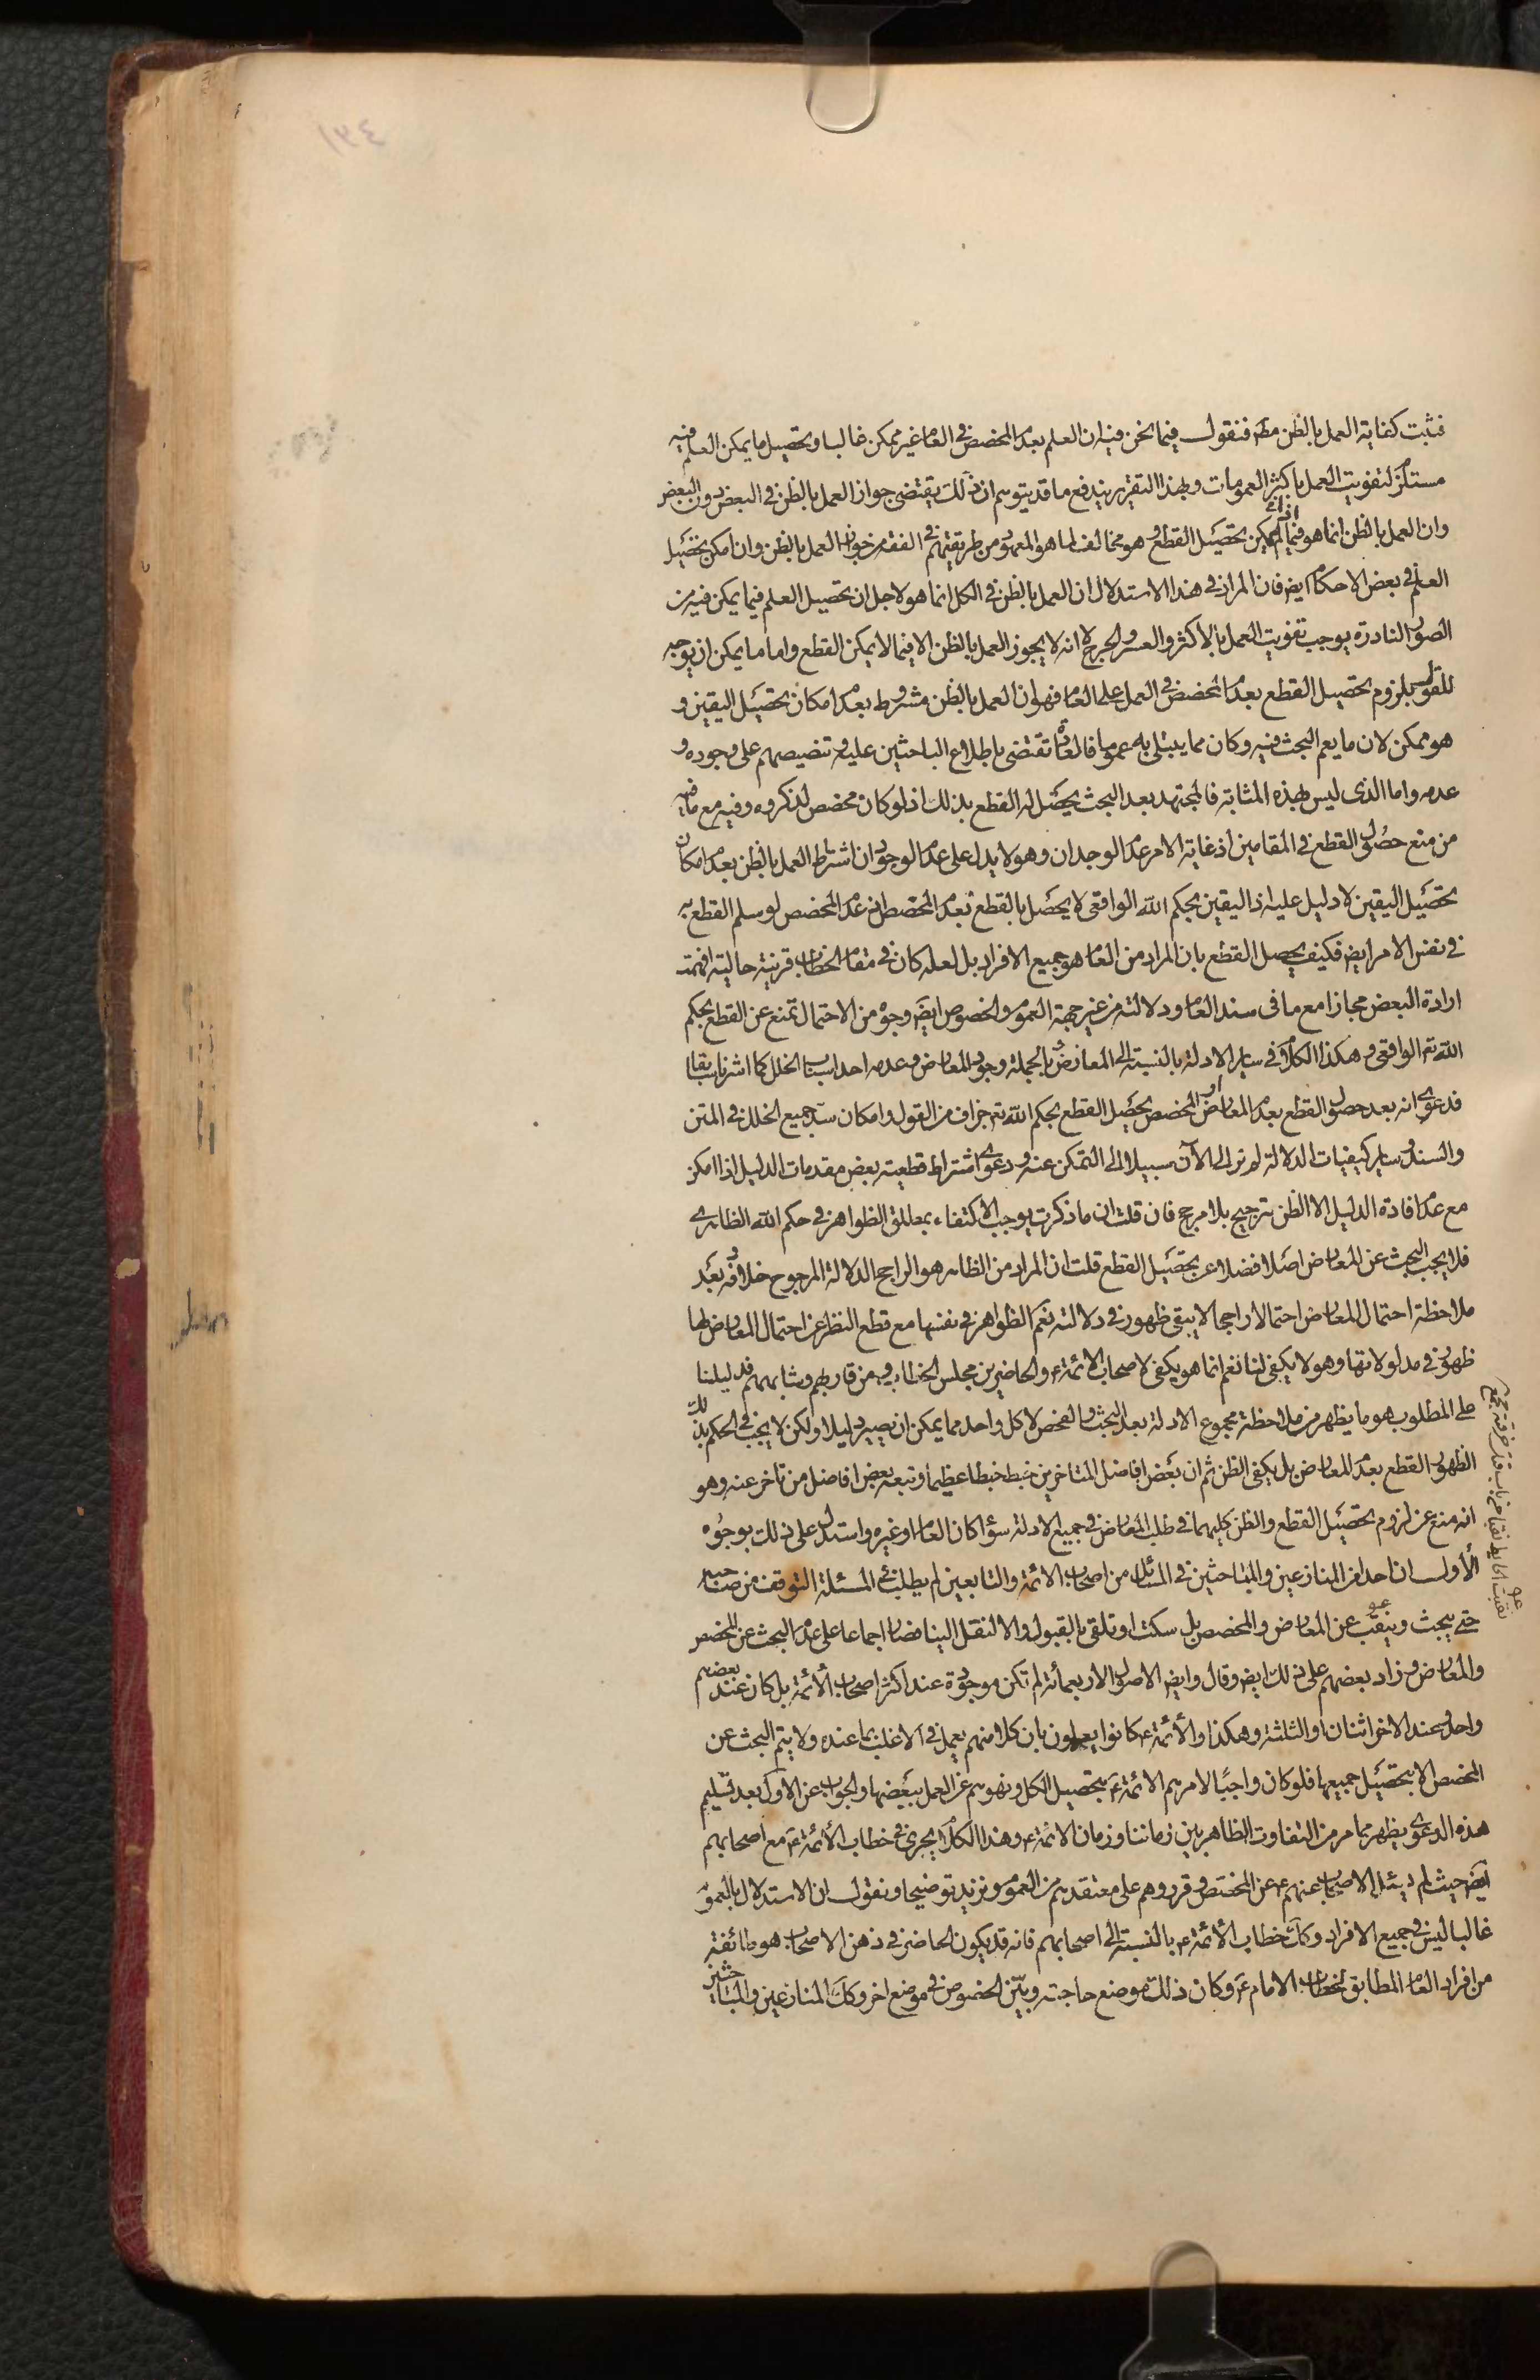 فثبت كفاية العمل بالظن مطر فنقول فيما نحن فيه ان العلم بعدم المخصص في العام غير ممكن غالبا وتحصيل ما يمكن العلم فيه
مستلزم لتفويت العمل باكثر العمومات وبهذا التقرير يندفع ما قد يتوهم ان ذلك يقتضى جواز العمل بالظن في البعض دون البعض
وان العمل بالظن انما هو فيما لم يمكن تحصيل القطع وهو مخالف لما هو المعهود من طريقتهم في الفقه من جواز العمل بالظن وان امكن تحصيل
العلم في بعض الاحكام ايض فان المراد في هذا الاستدلال ان العمل بالظن في الكل انما هو لاجل ان تحصيل العلم فيما يمكن فيه من
الصور النادرة يوجب تفويت العمل بالاكثر والعسر والحرج لا انه لا يجوز العمل بالظن الا فيما لا يمكن القطع واما ما يمكن ان يوجه
للقول بلزوم تحصيل القطع بعدم المخصص في العمل على العام فهو ان العمل بالظن مشروط بعدم امكان تحصيل اليقين و
هو ممكن لان ما يعم البحث فيه وكان مما يبتلى به عموما فالعادة تقتضى باطلاع الباحثين عليه وتنصيصهم على وجوده و
عدمه واما الذى ليس بهذه المثابة فالمجتهد بعد البحث يحصل له القطع بذلك اذ لو كان مخصص لذكروه وفيه مع ما فيه
من منع حصول القطع في المقامين اذ غاية الامر عدم الوجدان وهو لا يدل على عدم الوجود ان اشتراط العمل بالظن بعدم امكان
تحصيل اليقين لا دليل عليه اذ اليقين بحكم الله الواقعى لا يحصل بالقطع بعدم المخصص لان عدم المخصص لو سلم القطع به
في نفس الامر ايض فكيف يحصل القطع بان المراد من العام هو جميع الافراد بل لعله كان في مقام الخطاب قرينة حالية افهمت
ارادة البعض مجازا مع ما فى سند العام ودلالته من غير جهة العموم والخصوص ايض وجوه من الاحتمال تمنع عن القطع بحكم
الله تع الواقعى وهكذا الكلام في ساير الادلة بالنسبة الى المعارض وبالجملة وجود المعارض وعدمه احد اسباب الخلل كما اشرنا سابقا
فدعوى انه بعد حصول القطع بعدم المعارض او المخصص يحصل القطع بحكم الله تع جزاف من القول وامكان سد جميع الخلل في المتن
والسند وساير كيفيات الدلالة لم نر الى الآن سبيلا الى التمكن عنه ودعوى اشتراط قطعية بعض مقدمات الدليل اذا امكن
مع عدم افادة الدليل الا الظن ترجيح بلا مرجح فان قلت ان ما ذكرت يوجب الاكتفاء بمطلق الظواهر في حكم الله الظاهرى
فلا يجب البحث عن المعارض اصلا فضلا عن تحصيل القطع قلت ان المراد من الظاهر هو الراجح الدلالة المرجوح خلافه وبعد
ملاحظة احتمال المعارض احتمالا راجحا لا يبقى ظهور في دلالته نعم الظواهر في نفسها مع قطع النظر عن احتمال المعارض لها
ظهور في مدلولاتها وهو لا يكفى لنا نعم انما هو يكفى لاصحاب الائمة ع والحاضرين مجلس الخطاب ومن قاربهم وشابههم فدليلنا
على المطلوب هو ما يظهر من ملاحظة مجموع الادلة بعد البحث والفحص لا كل واحد مما يمكن ان يصير دليلا ولكن لا يجب في الحكم بذلك
الظهور القطع بعدم المعارض بل يكفى الظن ثم ان بعض افاضل المتاخرين خبط خبطا عظيما وتبعه بعض افاضل من تاخر عنه وهو
انه منع عن لزوم تحصيل القطع والظن كليهما في طلب المعارض في جميع الادلة سواء كان العام او غيره واستدل على ذلك بوجوه
الأول ان احدا من المنازعين والمباحثين في المسائل من اصحاب الائمة والتابعين لم يطلب في المسئلة التوقف من صاحبه
حتى يبحث وينقب عن المعارض والمخصص بل سكت او تلقى بالقبول والا لنقل الينا فصار اجماعا على عدم البحث عن المخصص
والمعارض وزاد بعضهم على ذلك ايض وقال وايض الاصول الاربعمائة لم تكن موجودة عند اكثر اصحاب الأئمة بل كان عند بعضهم
واحد وعند الاخر اثنان والثلثة وهكذا والأئمة ع كانوا يعلمون بان كلا منهم يعمل في الاغلب بما عنده ولا يتم البحث عن
المخصص الا بتحصيل جميعها فلو كان واجبا لامرهم الائمة ع بتحصيل الكل ونهوهم عن العمل ببعضها والجواب عن الاول بعد تسليم
هذه الدعوى يظهر مما مر من التفاوت الظاهر بين زماننا وزمان الائمة ع وهذا الكلام يجرى في خطاب الأئمة ع مع اصحابهم
ايض حيث لم يسئل الاصحاب عنهم ع عن المختص وقرروهم على معتقدهم من العموم ونزيد توضيحا ونقول ان الاستدلال بالعموم
غالبا ليس في جميع الافراد وكك خطاب الأئمة ع بالنسبة الى اصحابهم فانه قد يكون الحاضر في ذهن الاصحاب هو طائفة
من افراد العام المطابق لخطاب الامام ع وكان ذلك موضع حاجته وبين الخصوص في موضع اخر وكك المنازعين والمباحثين